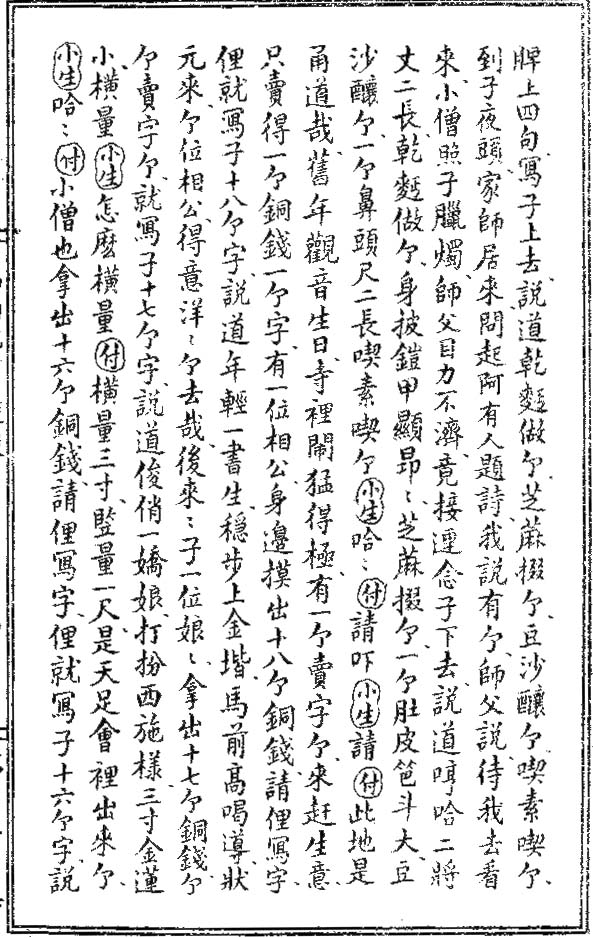 脾上四句寫子上去説道乾麪做个芝蔴掇个豆沙釀个喫素喫个
到子夜頭家師居來問起阿有人題詩我説有个師父説待我去看
來小僧照子臘燭師父目力不濟竟接連念子下去説道呵哈二將
丈二長乾麪做个身披鎧甲顯昂〻芝蔴掇个一个肚皮笆斗大豆
沙釀个一个鼻頭尺二長喫素喫个小生哈〻付請吓小生請付此地是
甬道哉舊年觀音生日寺裡鬧猛得極有一个賣字个來赶生意
只賣得一个銅錢一个字有一位相公身邊摸出十八个銅錢請俚寫字
俚就寫子十八个字説道年輕一書生穩步上金堦馬前高喝導狀
元來个位相公得意洋〻个去哉後來〻子一位娘〻拿出十七个銅錢个
个賣字个就寫子十七个字説道俊俏一嬌娘打扮西施樣三寸金蓮
小橫量小生怎麽橫量付橫量三寸豎量一尺是天足會裡出來个
小生哈〻付小僧也拿出十六个銅錢請俚寫字俚就寫子十六个字説